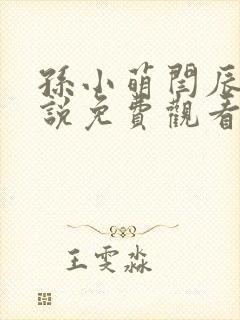 孫小萌閆辰
說免費觀看
王雯淼